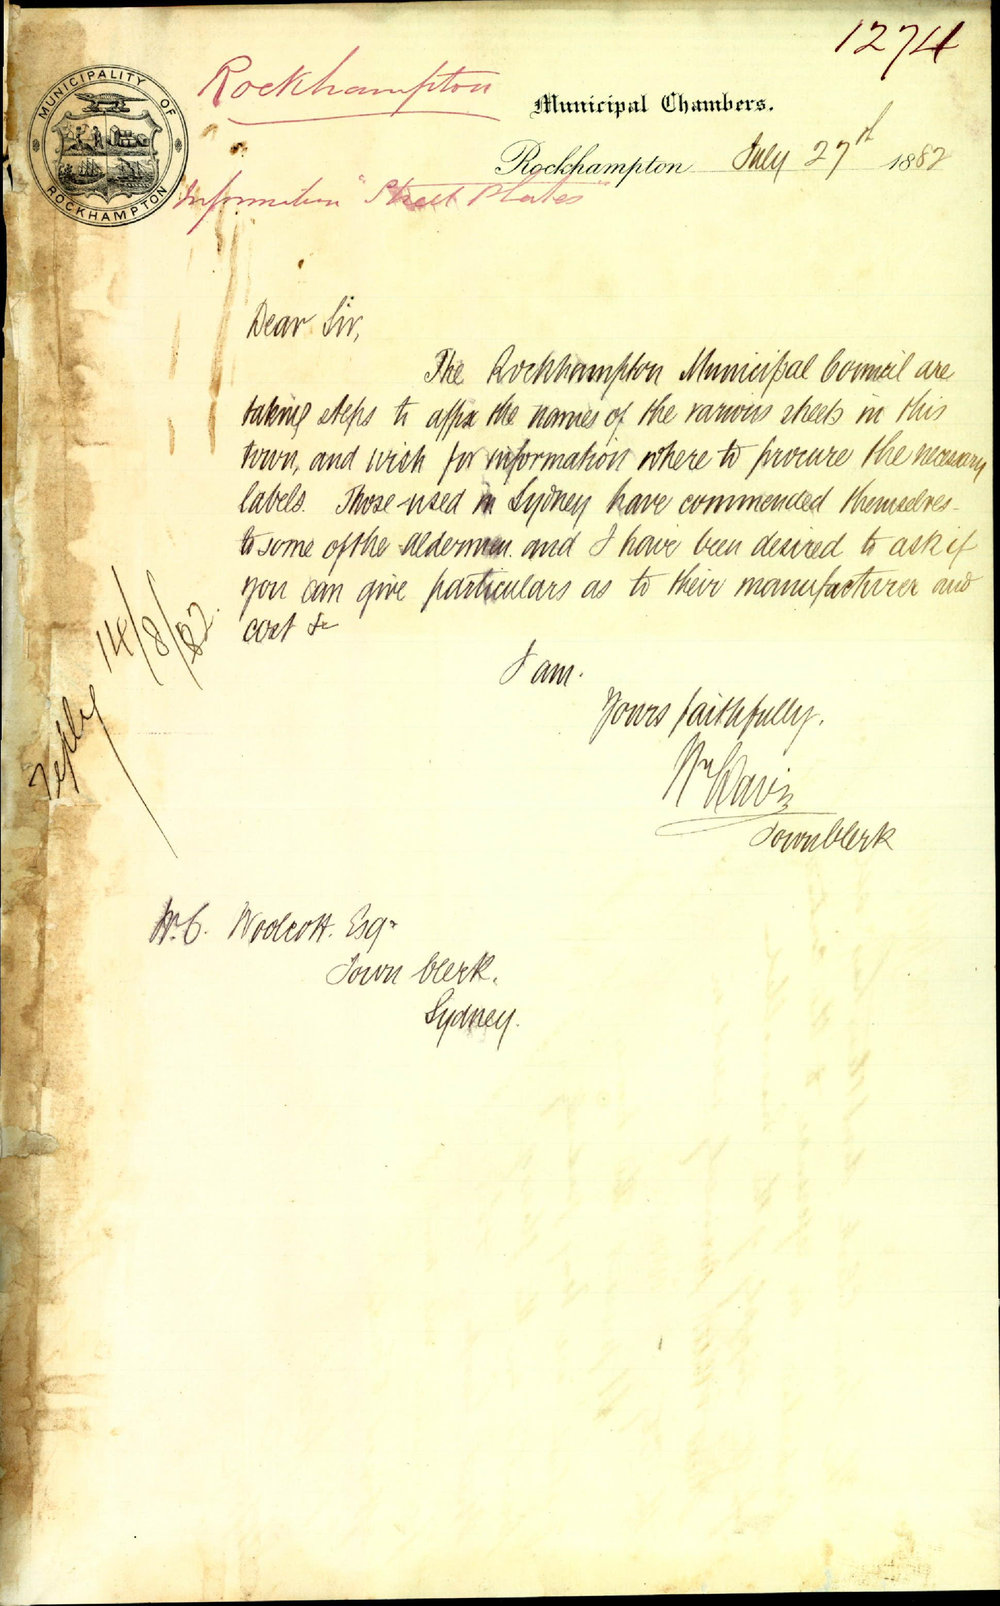 1274
MUNICIPALITY OF
ROCKHAMPTON
Rockhampton
Municipal Chambers.
Rockhampton July 27th 1882
Information "Street Plates"
Dear Sir,
The Rockhampton Municipal Council are
taking steps to affix the names of the various streets in this
town, and wish for information where to procure the necessary
labels. Those used in Sydney have commended themselves
to some of the aldermen and I have been desired to ask if
you can give particulars as to their manufacturer and
cost &c
I am.
Yours faithfully.
Davis
Town Clerk
Reply 14/8/82.
W. C. Woolcott. Esqr
Town Clerk.
Sydney.